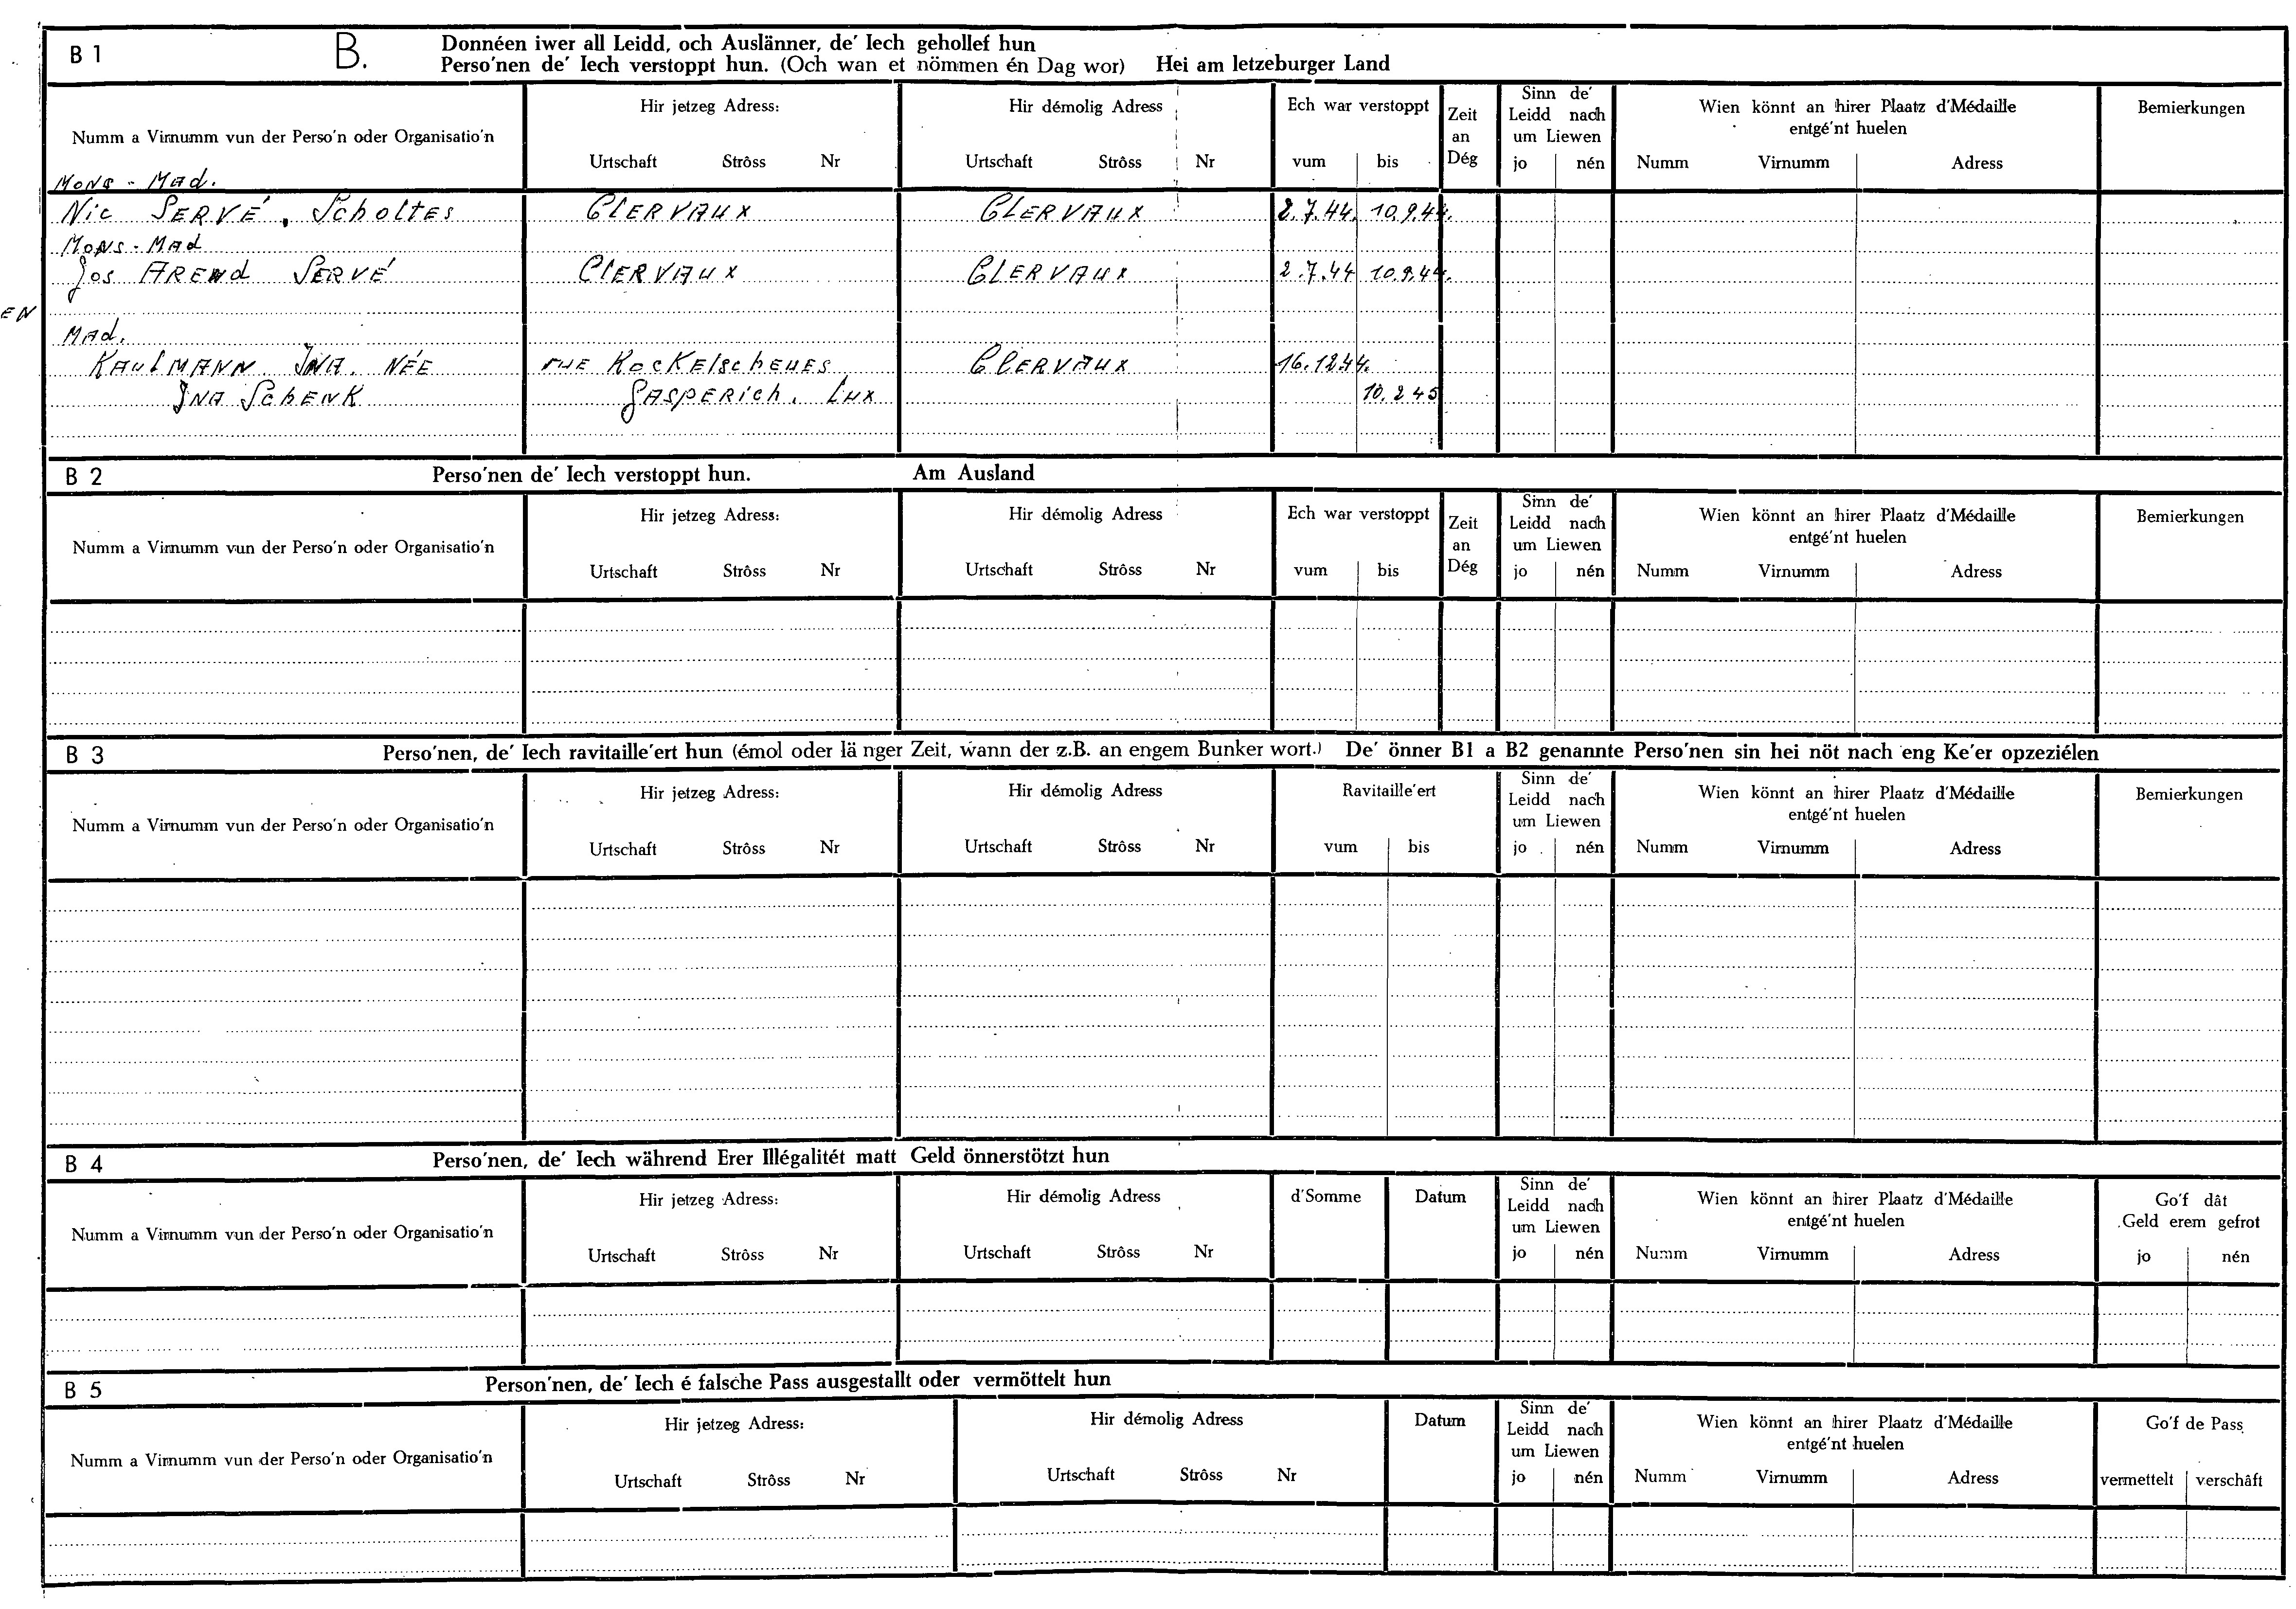 B 1 B. Donnéen iwer all Leidd, och Auslänner, de' Iech gehollef hun
Perso'nen de' Iech verstoppt hun. (Och wan et nömmen én Dag wor) Hei am letzeburger Land
Numm a Virnumm vun der Perso'n oder Organisatio'n
Hir jetzeg Adress:
Urtschaft Strôss Nr
Hir démolig Adress
Urtschaft Strôss Nr
Ech war verstoppt
vum bis
Zeit
an
Dég
Sinn de'
Leidd nach
um Liewen
jo nén
Wien könnt an hirer Plaatz d'Médaille
entgé'nt huelen
Numm Virnumm Adress
Bemierkungen
Mons - Mad.
Nic SERVÉ, Scholtes CLERVAUX CLERVAUX 2.7.44. 10.9.44.
Mons - Mad
Jos AREND SERVÉ CLERVAUX CLERVAUX 2.7.44 10.9.44.
EN
Mad.
KAUFMANN INA. NÉE rue KocKElscheues CLERVAUX 16.12.44.
INA SchENK GASPERich. Lux 10.2 45
B 2 Perso'nen de' Iech verstoppt hun. Am Ausland
Numm a Virnumm vun der Perso'n oder Organisatio'n
Hir jetzeg Adress:
Urtschaft Strôss Nr
Hir démolig Adress
Urtschaft Strôss Nr
Ech war verstoppt
vum bis
Zeit
an
Dég
Sinn de'
Leidd nach
um Liewen
jo nén
Wien könnt an hirer Plaatz d'Médaille
entgé'nt huelen
Numm Virnumm Adress
Bemierkungen
B 3 Perso'nen, de' Iech ravitaille'ert hun (émol oder länger Zeit, wann der z.B. an engem Bunker wort.) De' önner B1 a B2 genannte Perso'nen sin hei nöt nach eng Ke'er opzeziélen
Numm a Virnumm vun der Perso'n oder Organisatio'n
Hir jetzeg Adress:
Urtschaft Strôss Nr
Hir démolig Adress
Urtschaft Strôss Nr
Ravitaille'ert
vum bis
Sinn de'
Leidd nach
um Liewen
jo nén
Wien könnt an hirer Plaatz d'Médaille
entgé'nt huelen
Numm Virnumm Adress
Bemierkungen
B 4 Perso'nen, de' Iech während Erer Illégalitét matt Geld önnerstötzt hun
Numm a Virnumm vun der Perso'n oder Organisatio'n
Hir jetzeg Adress:
Urtschaft Strôss Nr
Hir démolig Adress
Urtschaft Strôss Nr
d'Somme
Datum
Sinn de'
Leidd nach
um Liewen
jo nén
Wien könnt an hirer Plaatz d'Médaille
entgé'nt huelen
Numm Virnumm Adress
Go'f dât
Geld erem gefrot
jo nén
B 5 Person'nen, de' Iech é falsche Pass ausgestallt oder vermöttelt hun
Numm a Virnumm vun der Perso'n oder Organisatio'n
Hir jetzeg Adress:
Urtschaft Strôss Nr
Hir démolig Adress
Urtschaft Strôss Nr
Datum
Sinn de'
Leidd nach
um Liewen
jo nén
Wien könnt an hirer Plaatz d'Médaille
entgé'nt huelen
Numm Virnumm Adress
Go'f de Pass
vermettelt verschâft